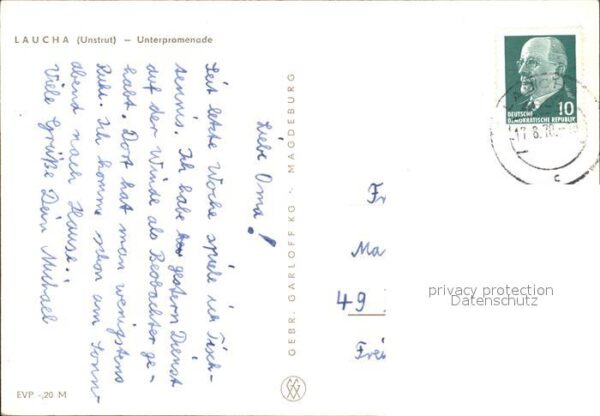 LAUCHA (Unstrut) — Unterpromenade
Liebe Oma!
Seit letzte Woche spiele ich Tisch-
tennis. Ich habe gestern Dienst
auf der Winde als Beobachter ge-
habt. Dort hat man wenigstens
Ruh. Ich komme schon am Sonn-
abend nach Hause.
Viele Grüße Dein Michael
GEBR. GARLOFF KG · MAGDEBURG
EVP -,20 M
10
DEUTSCHE
DEMOKRATISCHE REPUBLIK
17.8.70
c
Fr
Ma
49
Frei
privacy protection
Datenschutz